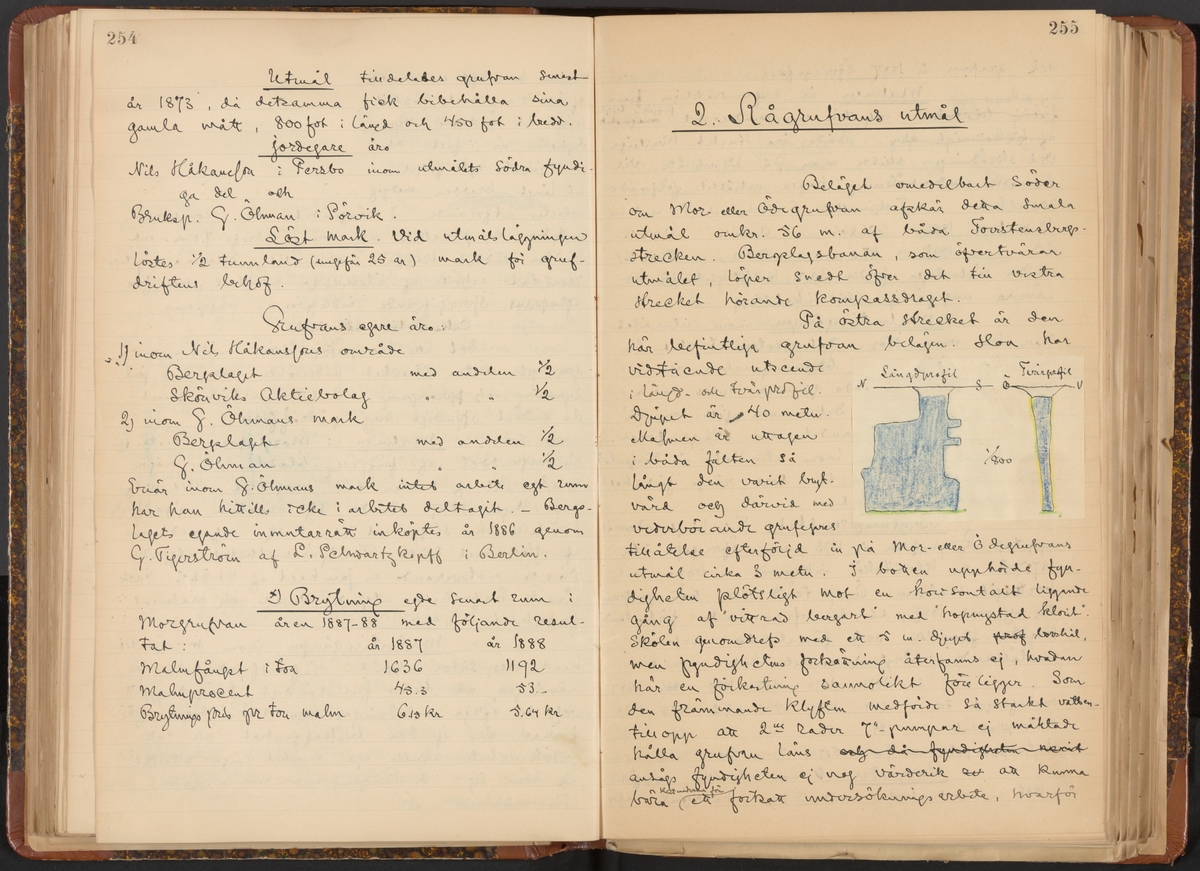 254
Utmål tilldelades grufvan senast
år 1873, då detsamma fick bibehålla sina
gamla mått, 800 fot i längd och 450 fot i bredd.
Jordegare äro
Nils Håkansson i Persbo inom utmålets södra fyndi-
ga del och
Bruksp. G. Öhman i Sörvik.
Löst mark. Vid utmålsläggningen
löstes 1/2 tunnland (ungefär 25 ar) mark för gruf-
driftens behof.
Grufvans egare äro:
1) inom Nils Håkanssons område
Bergslaget med andelen 1/2
Skönviks Aktiebolag " " 1/2
2) inom G. Öhmans mark
Bergslaget med andelen 1/2
G. Öhman " " 1/2
Enär inom G. Öhmans mark intet arbete egt rum
har han hittills icke i arbetet deltagit. — Bergs-
lagets egande inmutarrätt inköptes år 1886 genom
G. Tigerström af L. Schwartzkopff i Berlin.
Brytning egde senast rum i
Morgrufvan åren 1887-88 med följande resul-
tat: år 1887 år 1888
Malmfångst i ton 1636 1192
Malmprocent 45.5 53.–
Brytnings pris pr ton malm kr 5.64 kr
255
2. Rågrufvans utmål
Beläget omedelbart söder
om Mor- eller Ödegrufvan afskär detta smala
utmål omkr. 56 m. af båda Torstensbergs-
strecken. Bergslagsbanan, som öfvertvärar
utmålet, löper snedt öfver det till vestra
strecket hörande kompassdraget.
På östra strecket är den
här befintliga grufvan belägen. Hon har
vidstående utseende
i längd- och tvärprofil.
Djupet är 40 meter.
Malmen är uttagen
i båda fälten så
långt den varit bryt-
värd och därvid med
vederbörande grufegares
N Längdprofil S Ö Tvärprofil V
1/800
tillåtelse efterföljd in på Mor- eller Ödegrufvans
utmål cirka 3 meter. I botten upphörde fyn-
digheten plötsligt mot en horisontalt liggende
gång af "vittrad bergart" med "hopmystad klorit".
Skölen genomdrefs med ett 5 m. djupt prof borrhål,
men fyndighetens fortsättning återfanns ej, hvadan
här en förkastning sannolikt föreligger. Som
den främmande klyften medförde så starkt vatten-
tillopp att 2ne rader 7" pumpar ej mäktade
hålla grufvan läns och då fyndigheten
ansågs fyndigheten ej nog värderik att kunna
bära kostnaden för ett fortsatt undersökningsarbete, hvarför